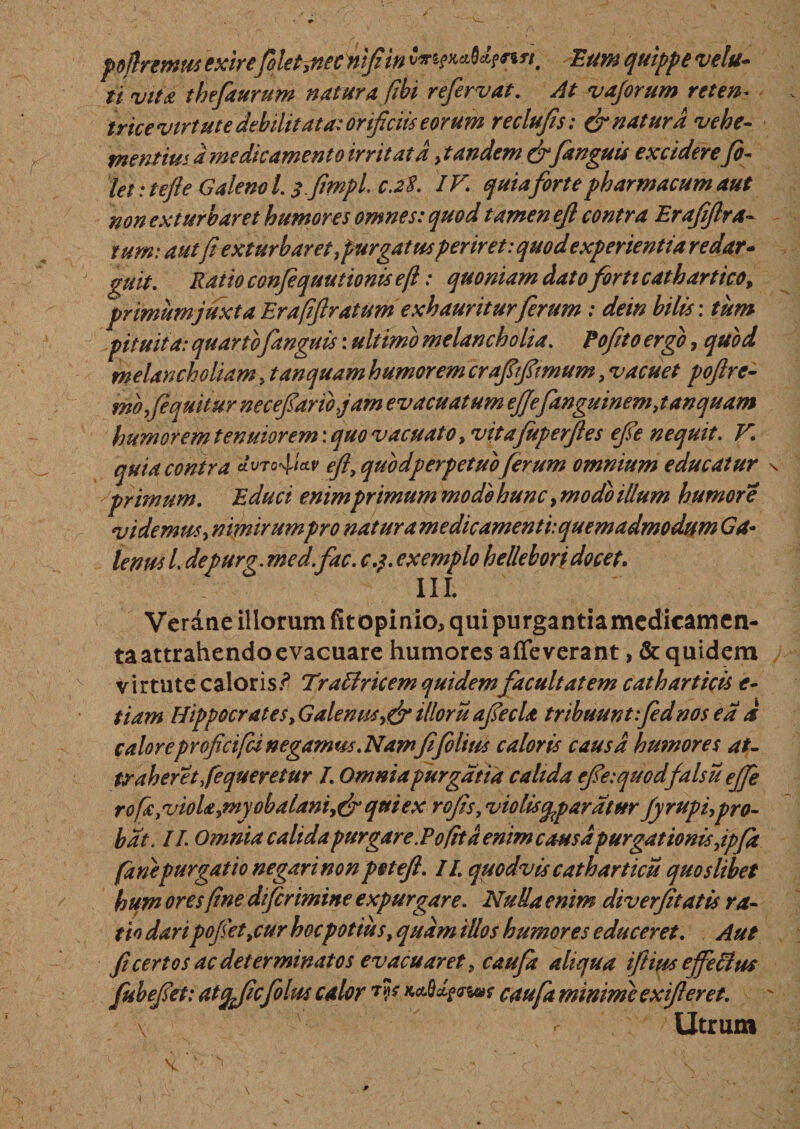 poſtremus exire ſolet, nec niſi in ὑπερκαθάρσει. Eum quippe velu-
ti vitæ theſaurum natura ſibi reſervat. At vaſorum reten-
trice virtute debilitata: orificiis eorum recluſis: & naturâ vehe-
mentius à medicamento irritatâ, tandem & ſanguis excidere ſo-
let: teſte Galeno l. 3. ſimpl. c. 28. IV. quia forte pharmacum aut
non exturbaret humores omnes: quod tamen eſt contra Eraſiſtra-
tum: aut ſi exturbaret, purgatus periret: quod experientia redar-
guit. Ratio conſequutionis eſt: quoniam dato forti cathartico,
primùm juxta Eraſiſtratum exhauritur ſerum: dein bilis: tùm
pituita: quartò ſanguis: ultimò melancholia. Poſito ergò, quòd
melancholiam, tanquam humorem craſſiſſimum, vacuet poſtre-
mò, ſequitur neceſſariò, jam evacuatum eſſe ſanguinem, tanquam
humorem tenuiorem: quo vacuato, vita ſuperſtes eſſe nequit. V.
quia contra ἀυτοψίαν eſt, quòd perpetuò ſerum omnium educatur
primum. Educi enim primum modò hunc, modò illum humorē
videmus, nimirum pro natura medicamenti: quemadmodum Ga-
lenus l. de purg. med. fac. c. 3. exemplo hellebori docet.
III.
Veráne illorum ſit opinio, qui purgantia medicamen-
ta attrahendo evacuare humores aſſeverant, & quidem
virtute caloris? Tractricem quidem facultatem catharticis e-
tiam Hippocrates, Galenus, & illorū aſſeclæ tribuunt: ſed nos eā à
calore proficiſci negamus. Nam ſi ſolius caloris causâ humores at-
traheret, ſequeretur I. Omnia purgātia calida eſſe: quod falsū eſſe
roſæ, violæ, myobalani, & qui ex roſis, violisq; parātur ſyrupi, pro-
bāt. II. Omnia calida purgare. Poſitâ enim causâ purgationis, ipſa
ſanè purgatio negari non poteſt. II. quodvis catharticū quoslibet
humores ſine diſcrimine expurgare. Nulla enim diverſitatis ra-
tio dari poſſet, cur hoc potiùs, quàm illos humores educeret. Aut
ſi certos ac determinatos evacuaret, cauſa aliqua iſtius effectus
ſubeſſet: atq; ſic ſolus calor τῆς καθάρσεως cauſa minimè exiſteret.
Utrum